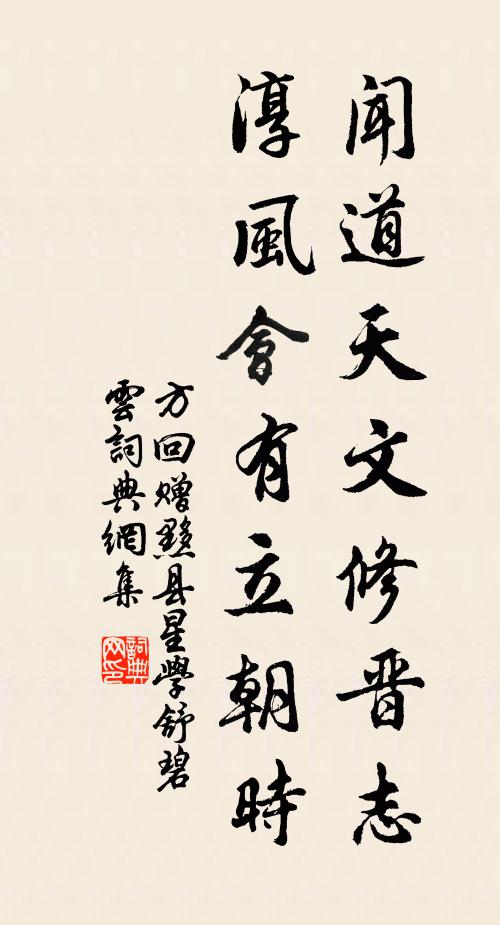 聞道天文修晋志
淳風會有立朝時
方回赠黟县星學舒碧
雲詞典網集
詞典
网印